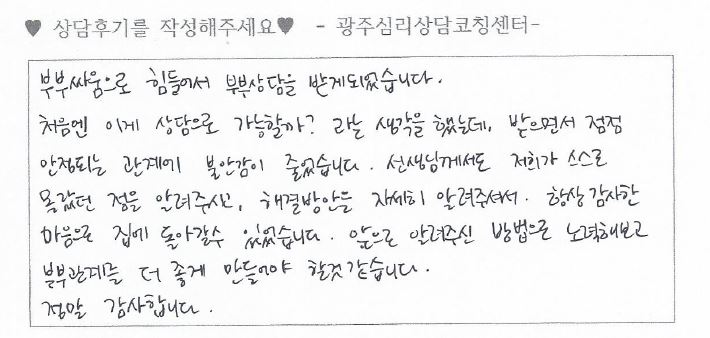 ♥ 상담후기를 작성해주세요♥ - 광주심리상담코칭센터-
부부싸움으로 힘들어서 부부상담을 받게되었습니다.
처음엔 이게 상담으로 가능할까? 라는 생각을 했는데, 받으면서 점점
안정되는 관계에 불안감이 줄었습니다. 선생님께서도 저희가 스스로
몰랐던 점을 알려주시고, 해결방안을 자세히 알려주셔서. 항상 감사한
마음으로 집에 돌아갈수 있었습니다. 앞으로 알려주신 방법으로 노력해보고
부부관계를 더 좋게 만들어야 할것 같습니다.
정말 감사합니다.